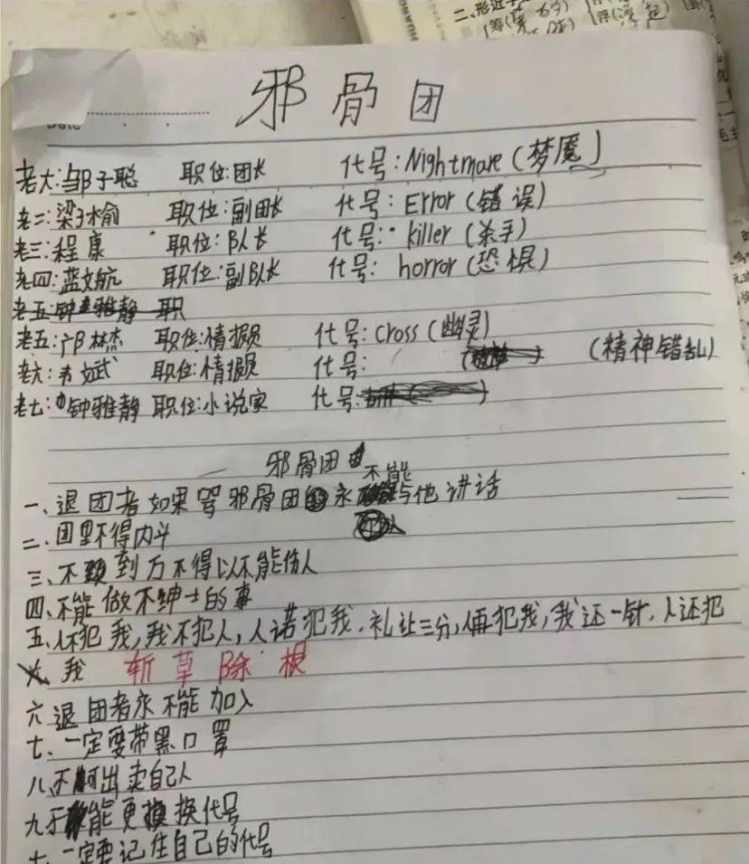 二、形近字
邪骨团
Date
老大:邹子聪 职位:团长 代号:Nightmare(梦魇)
老二:梁子愉 职位:副团长 代号:Error(错误)
老三:程康 职位:队长 代号:killer(杀手)
老四:蓝文航 职位:副队长 代号:horror(恐惧)
老五:钟雅静 职
老五:邝林杰 职位:情报员 代号:Cross(幽灵)
老六:韦斌 职位:情报员 代号: (精神错乱)
老七:钟雅静 职位:小说家 代号:
邪骨团
一、退团者如果骂邪骨团永不能与他讲话
二、团里不得内斗
三、不到万不得以不能伤人
四、不能做不绅士的事
五、人不犯我,我不犯人,人若犯我,礼让三分,人再犯我,我还一针,人还犯
我 斩草除根
六、退团者永不能加入
七、一定要带黑口罩
八、不可出卖自己人
九、不能更换代号
十、一定要记住自己的代号